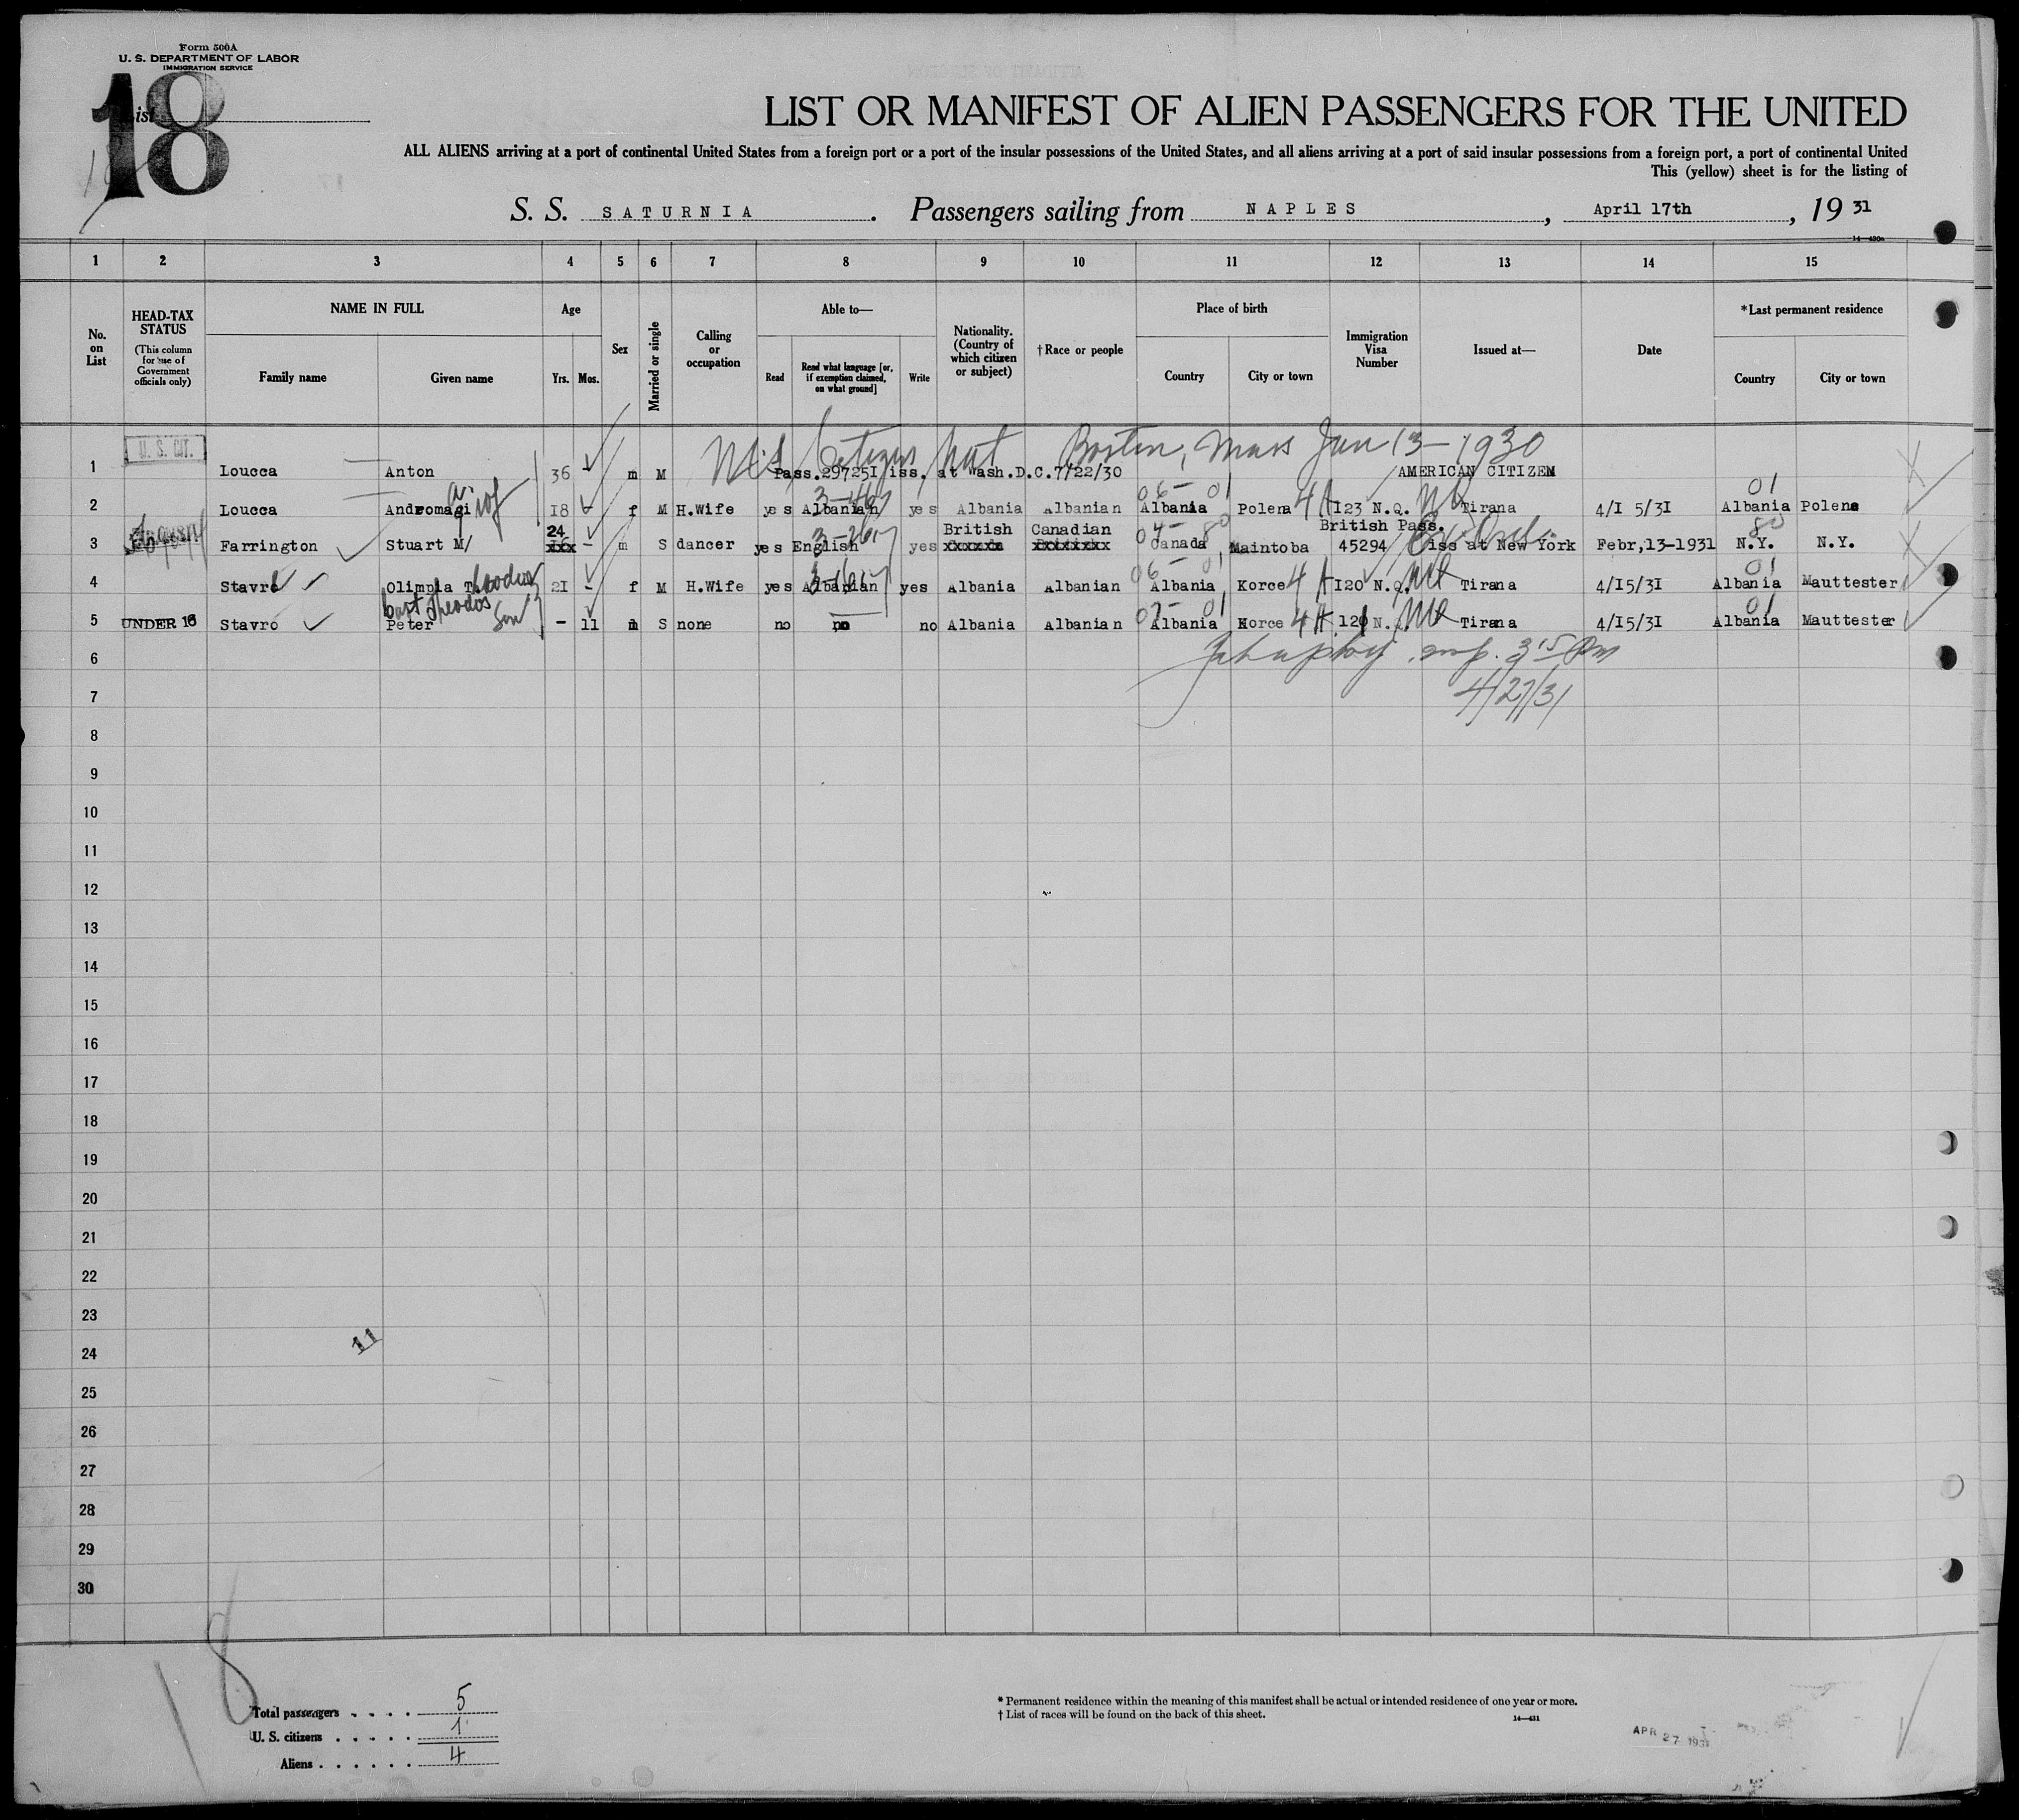 Form 500A
U. S. DEPARTMENT OF LABOR
IMMIGRATION SERVICE
18
List
LIST OR MANIFEST OF ALIEN PASSENGERS FOR THE UNITED
ALL ALIENS arriving at a port of continental United States from a foreign port or a port of the insular possessions of the United States, and all aliens arriving at a port of said insular possessions from a foreign port, a port of continental United
This (yellow) sheet is for the listing of
S. S. SATURNIA . Passengers sailing from NAPLES , April 17th , 19 31
1 2 3 4 5 6 7 8 9 10 11 12 13 14 15
No. on List
HEAD-TAX STATUS
(This column for use of Government officials only)
NAME IN FULL
Family name Given name
Age
Yrs. Mos.
Sex
Married or single
Calling or occupation
Able to—
Read Read what language [or, if exemption claimed, on what ground] Write
Nationality. (Country of which citizen or subject)
† Race or people
Place of birth
Country City or town
Immigration Visa Number
Issued at—
Date
*Last permanent residence
Country City or town
Boston, Mass Jan 13-1930
1 U. S. CIT. Loucca Anton 36 - m M Pass.297251 iss. at Wash.D.C.7/22/30 AMERICAN CITIZEN
2 Loucca Andromaqi wf 18 - f M H.Wife yes Albanian yes Albania Albanian Albania Polena I23 N.Q. Tirana 4/I 5/3I Albania Polena
24 British Canadian British Pass.
3 Farrington Stuart M/ xxx - m S dancer yes English yes Canada Maintoba 45294 iss at New York Febr,13-1931 N.Y. N.Y.
4 Stavro Olimpia Theodos 2I - f M H.Wife yes Albanian yes Albania Albanian Albania Korce I20 N.Q. Tirana 4/I5/3I Albania Mauttester
Theodos son
5 UNDER 16 Stavro Peter - 11 m S none no no no Albania Albanian Albania Korce 121 N.Q. Tirana 4/15/3I Albania Mauttester
6 insp. 3 15 Pm
7 4/27/31
8
9
10
11
12
13
14
15
16
17
18
19
20
21
22
23
11
24
25
26
27
28
29
30
18
Total passengers . . . . 5
U. S. citizens . . . . . 1
Aliens . . . . . . 4
* Permanent residence within the meaning of this manifest shall be actual or intended residence of one year or more.
† List of races will be found on the back of this sheet.
14—431
APR 27 1931